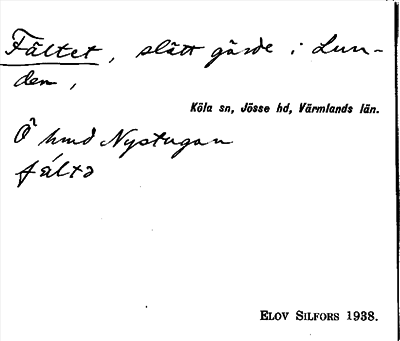 Fältet, slätt gärde i Lun-
den,
Köla sn, Jösse hd, Värmlands län.
Ö hmd Nystugan
fálta
ELOV SILFORS 1938.